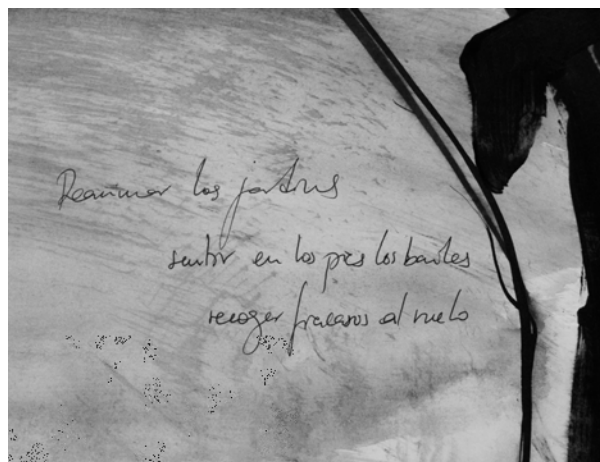 Reanimar los jardines
sentir en los pies los bailes
recoger fracasos al vuelo